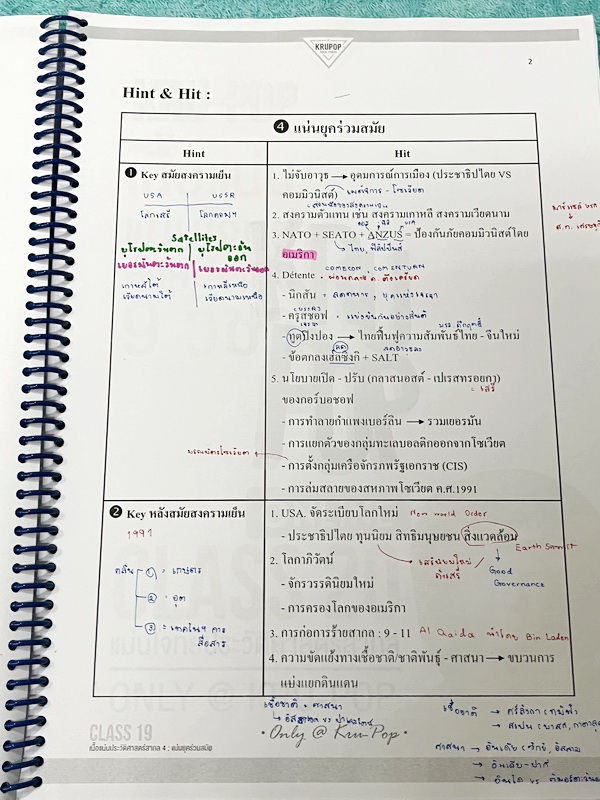 KRUPOP
2
Hint & Hit :
❹ แน่นยุคร่วมสมัย
Hint
Hit
❶ Key สมัยสงครามเย็น
USA
USSR
โลกเสรี
โลกคอมฯ
Satellites
ยุโรปตะวันตก
ยุโรปตะวันออก
เยอรมันตะวันตก
เยอรมันตะวันออก
เกาหลีใต้
เกาหลีเหนือ
เวียดนามใต้
เวียดนามเหนือ
1. ไม่จับอาวุธ → อุดมการณ์การเมือง (ประชาธิปไตย VS
คอมมิวนิสต์) เผด็จการ - โซเวียต
2. สงครามตัวแทน เช่น สงครามเกาหลี สงครามเวียดนาม
3. NATO + SEATO + ANZUS = ป้องกันภัยคอมมิวนิสต์โดย
อเมริกา
ไทย, ฟิลิปปินส์
COMECON, COMINTURN
4. Détente • ผ่อนคลาย ตึงเครียด
- นิกสัน •
- ครุสชอฟ •
- ทูตปิงปอง → ไทยฟื้นฟูความสัมพันธ์ไทย - จีนใหม่
- ข้อตกลงเฮลซิงกิ + SALT
5. นโยบายเปิด - ปรับ (กลาสนอสต์ - เปเรสทรอยกา)
= เสรี
ของกอร์บอชอฟ
- การทำลายกำแพงเบอร์ลิน → รวมเยอรมัน
- การแยกตัวของกลุ่มทะเลบอลติกออกจากโซเวียต
- การตั้งกลุ่มเครือจักรภพรัฐเอกราช (CIS)
- การล่มสลายของสหภาพโซเวียต ค.ศ.1991
❷ Key หลังสมัยสงครามเย็น
1991
คลื่น
① : เกษตร
② : อุต
③ : เทคโนฯ การ
สื่อสาร
1. USA. จัดระเบียบโลกใหม่ New World Order
- ประชาธิปไตย ทุนนิยม สิทธิมนุษยชน สิ่งแวดล้อม
Earth Summit
2. โลกาภิวัตน์
เสรีนิยมใหม่
ค้าเสรี
Good
Governance
- จักรวรรดินิยมใหม่
- การครองโลกของอเมริกา
3. การก่อการร้ายสากล : 9 - 11 Al Qaida นำโดย Bin Laden
4. ความขัดแย้งทางเชื้อชาติ/ชาติพันธุ์ - ศาสนา → ขบวนการ
แบ่งแยกดินแดน
เชื้อชาติ + ศาสนา
เชื้อชาติ
ศาสนา → อินเดีย
→ อินเดีย - ปากี
CLASS 19
• Only @ Kru Pop •
เนื้อแน่นประวัติศาสตร์สากล 4 : แน่นยุคร่วมสมัย